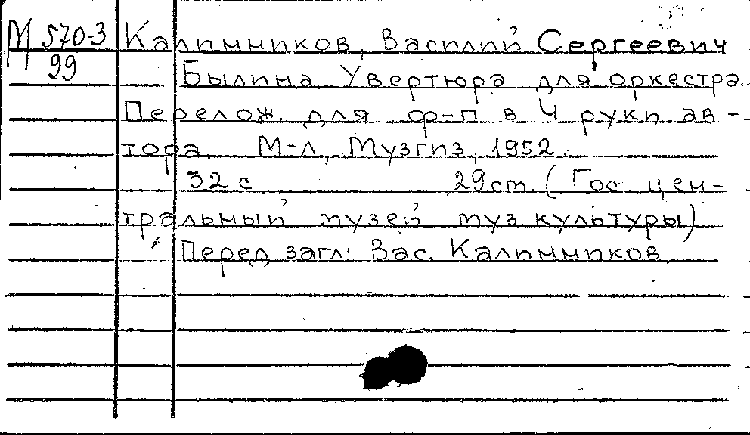 М 570-3 Калинников, Василий Сергеевич
99 Былина. Увертюра для оркестра.
Перелож. для ф-п в 4 руки ав-
тора. М-Л, Музгиз, 1952.
32 с 29 ст. (Гос. цен-
тральный музей муз культуры)
Перед загл: Вас. Калинников